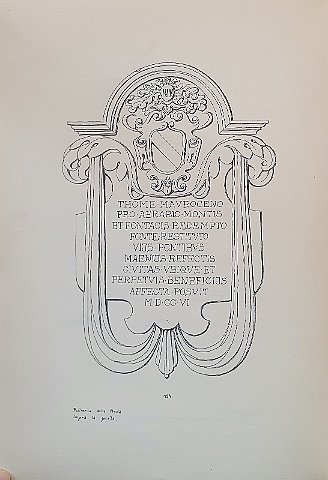 THOMÆ·MAVROCENO
PRO·AERARIO·MONTIS
ET·FONTACIS·REDEMPTO
FONTE·RESTITVTO
VIIS·PONTIBVS
MAENIIS·REFECTIS
CIVITAS·VBIQVE·ET
PERPETVIA·BENEFICIIS
AFFECTA·POSVIT
M·D·CC·VI